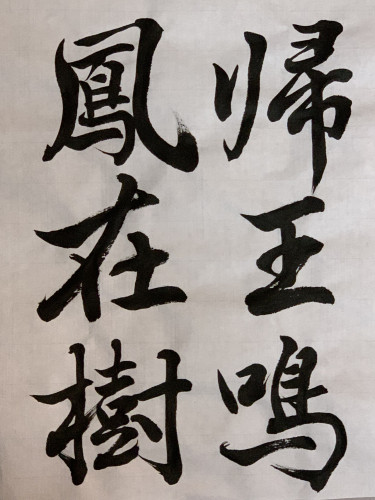 帰王鳴
鳳在樹